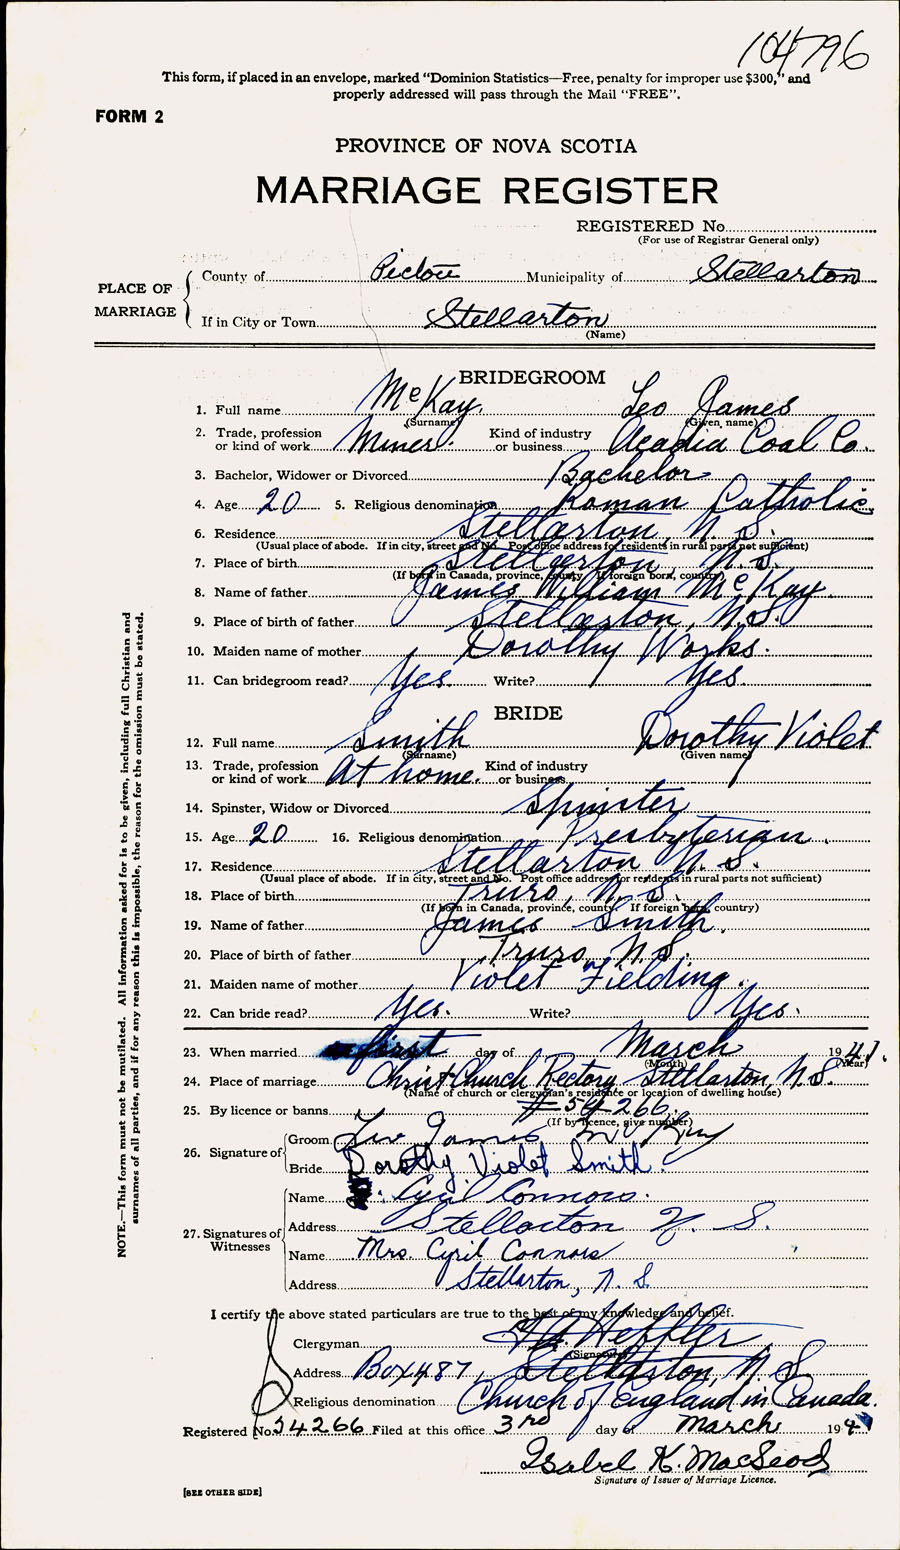 104796
This form, if placed in an envelope, marked "Dominion Statistics—Free, penalty for improper use $300," and
properly addressed will pass through the Mail "FREE".
FORM 2
PROVINCE OF NOVA SCOTIA
MARRIAGE REGISTER
REGISTERED No.
(For use of Registrar General only)
PLACE OF MARRIAGE
County of Pictou Municipality of Stellarton
If in City or Town Stellarton
(Name)
BRIDEGROOM
1. Full name McKay, Leo James
(Surname) (Given name)
2. Trade, profession or kind of work Miner. Kind of industry or business Acadia Coal Co.
3. Bachelor, Widower or Divorced Bachelor
4. Age 20 5. Religious denomination Roman Catholic
6. Residence Stellarton, N.S.
(Usual place of abode. If in city, street and No. Post office address for residents in rural parts not sufficient)
7. Place of birth Stellarton N.S.
(If born in Canada, province, county. If foreign born, country)
8. Name of father James William McKay.
9. Place of birth of father Stellarton, N.S.
10. Maiden name of mother Dorothy Works.
11. Can bridegroom read? Yes. Write? Yes.
BRIDE
12. Full name Smith Dorothy Violet
(Surname) (Given name)
13. Trade, profession or kind of work At home. Kind of industry or business
14. Spinster, Widow or Divorced Spinster
15. Age 20 16. Religious denomination Presbyterian.
17. Residence Stellarton N.S.
(Usual place of abode. If in city, street and No. Post office address for residents in rural parts not sufficient)
18. Place of birth Truro, N.S.
(If born in Canada, province, county. If foreign born, country)
19. Name of father James Smith.
20. Place of birth of father Truro, N.S.
21. Maiden name of mother Violet Fielding.
22. Can bride read? Yes. Write? Yes.
23. When married first day of March 1941.
(Month) (Year)
24. Place of marriage Christ Church Rectory Stellarton, N.S.
(Name of church or clergyman's residence or location of dwelling house)
25. By licence or banns #54266.
(If by licence, give number)
26. Signature of Groom Leo James McKay
Bride Dorothy Violet Smith.
27. Signatures of Witnesses
Name Cyril Connors.
Address Stellarton N.S.
Name Mrs. Cyril Connors
Address Stellarton, N.S
I certify the above stated particulars are true to the best of my knowledge and belief.
Clergyman Heffler
(Signature)
Address Box 487, Stellarton, N.S.
Religious denomination Church of England in Canada.
Registered No. 54266 Filed at this office 3rd day of March 1941
Isabel K. MacLeod
Signature of Issuer of Marriage Licence.
[SEE OTHER SIDE]
NOTE.—This form must not be mutilated. All information asked for is to be given, including full Christian and
surnames of all parties, and if for any reason this is impossible, the reason for the omission must be stated.